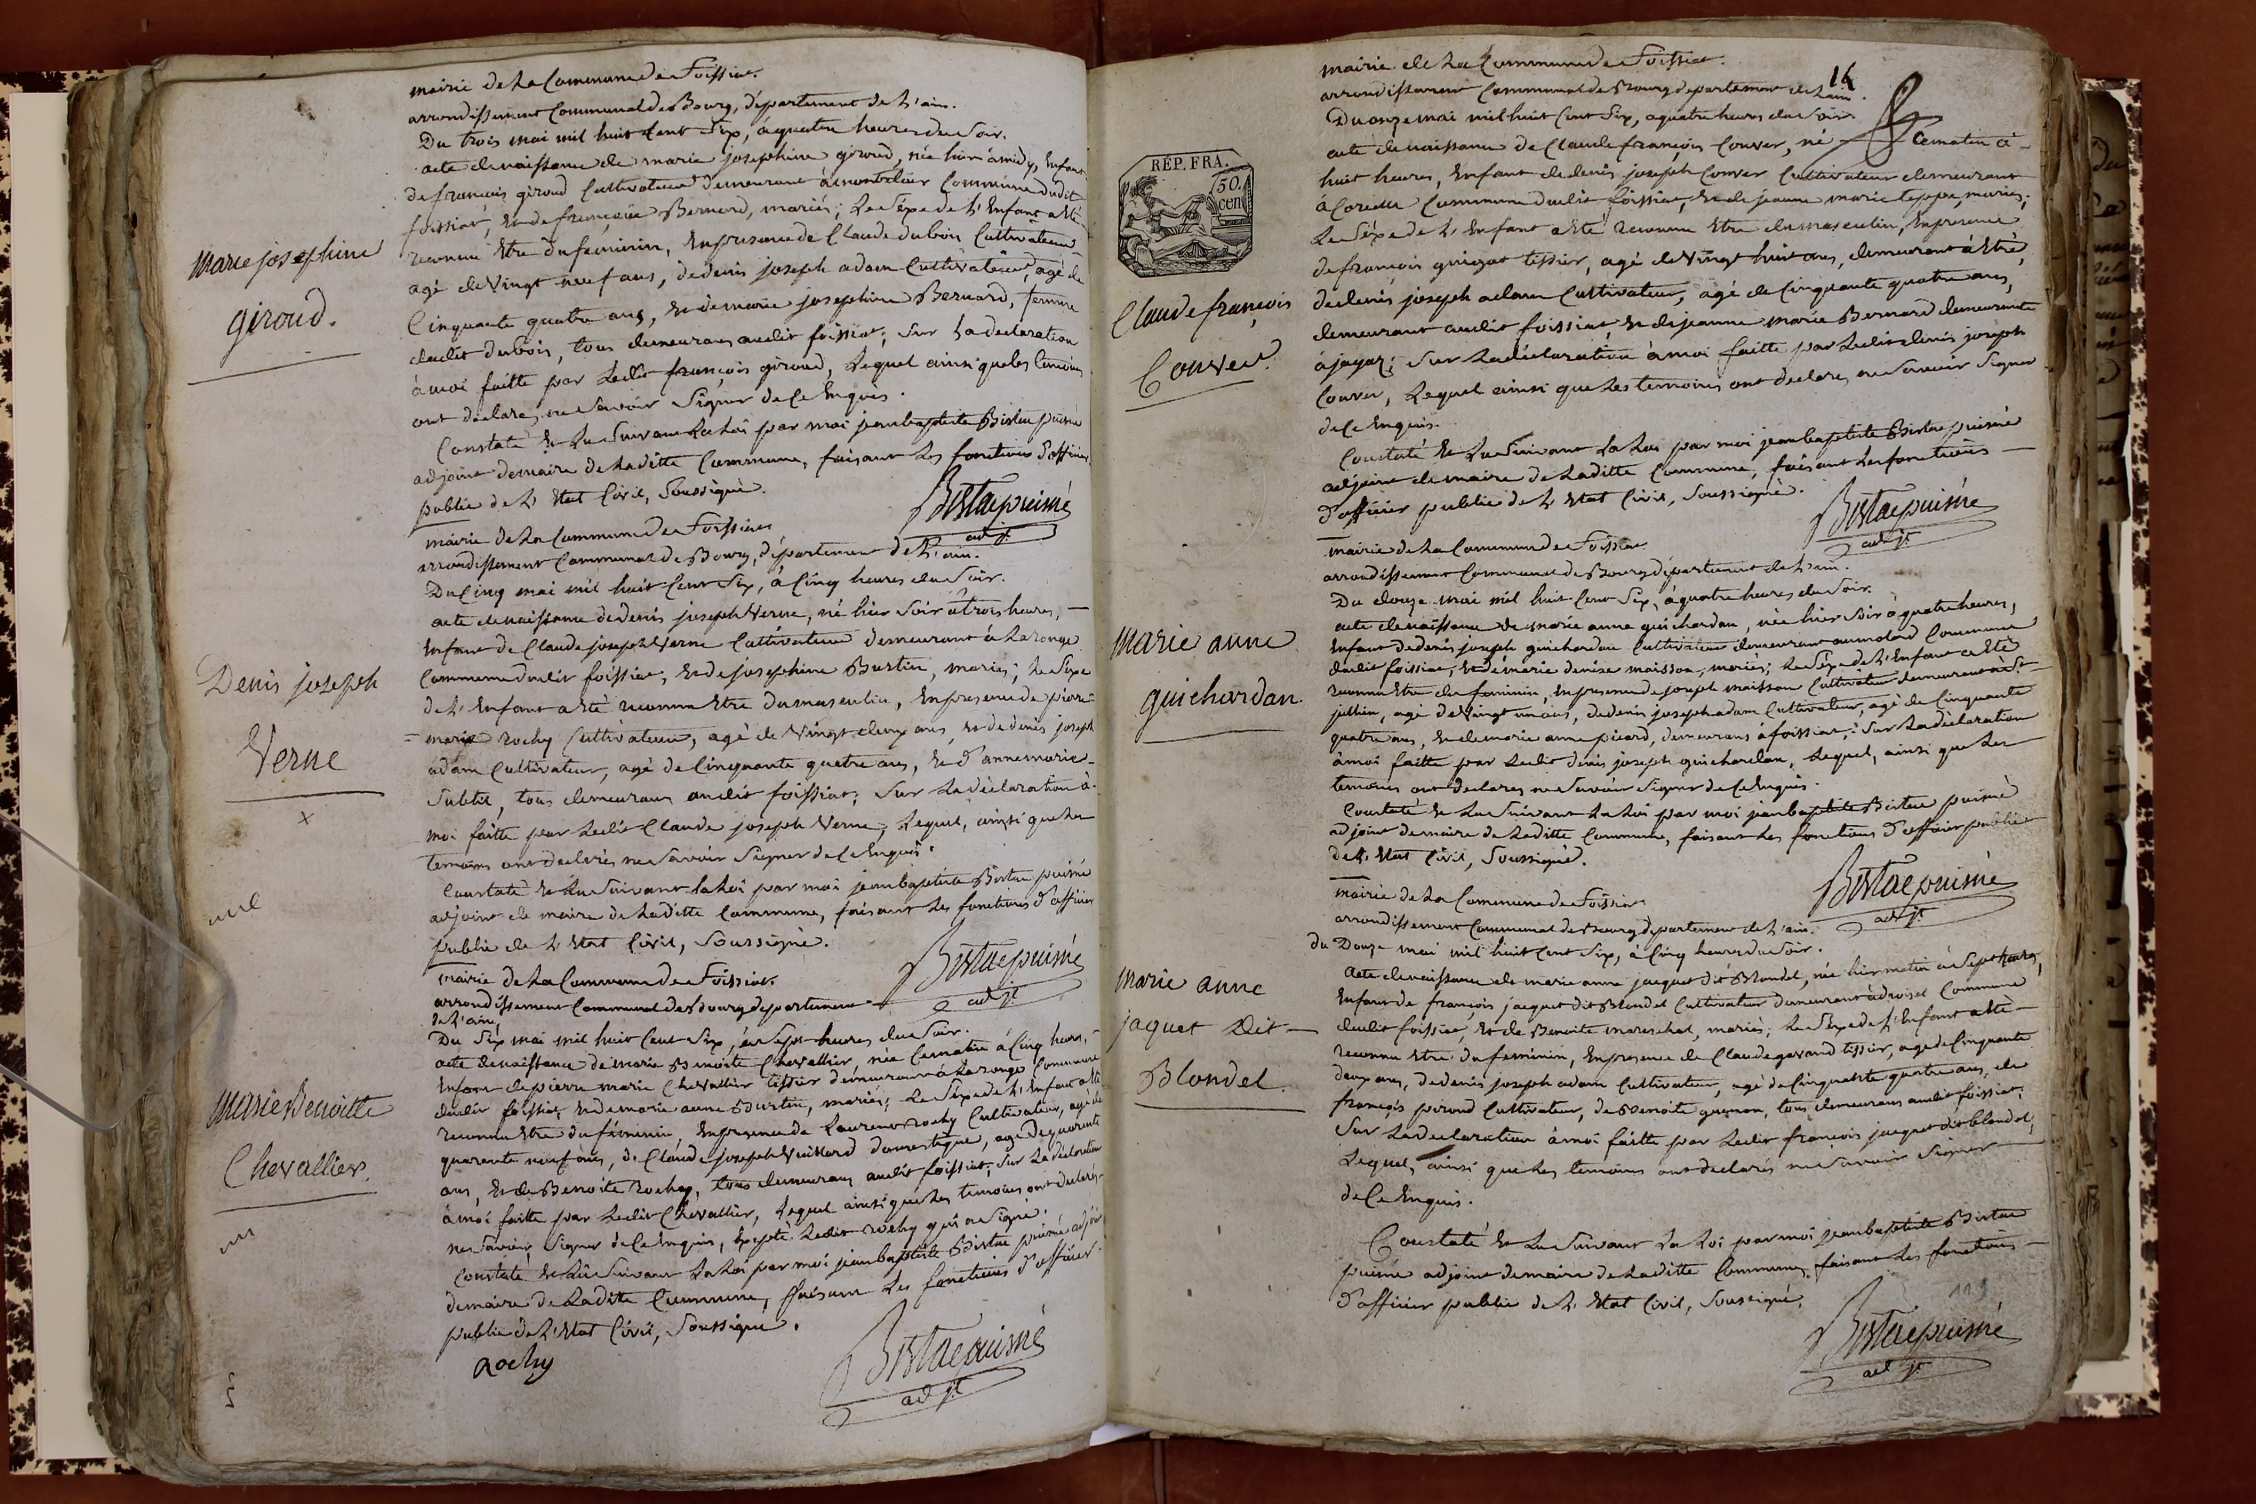 mairie de La Commune de Foissiat.
arrondissement Communal de Bourg, département de L'ain.
Du trois mai mil huit Cent Six, à quatre heures du Soir.
acte de naissance de marie josephine giroud, née hier à midy, Enfant
de françois giroud Cultivateur demeurant à montclair Commune dudit
foissiat, Et de françoise Bernard, mariés; Le Séxe de L'Enfant a Eté
reconnu Etre du feminin, En presence de Claude dubois Cultivateur
agé de Vingt neuf ans, de denis joseph adam Cultivateur, agé de
Cinquante quatre ans, Et de marie josephine Bernard, femme
dudit dubois, tous demeurans audit foissiat; Sur La declaration
à moi faitte par Ledit françois giroud, Lequel ainsi que les temoins
ont declaré ne Savoir Signer de Ce Enquis.
Constaté Et Lu Suivant La Loi par moi jean baptiste Bistac puiné
adjoint de maire de Laditte Commune, faisant Les fonctions d'officier
public de L'Etat Civil, Soussigné.
Bistac puisné
adjt
Marie josephine
giroud.
mairie de La Commune de Foissiat
arrondissement Communal de Bourg, département de L'ain.
Du Cinq mai mil huit Cent Six, à Cinq heures du Soir.
acte de naissance de denis joseph Verne, né hier Soir à trois heures,
Enfant de Claude joseph Verne Cultivateur demeurant à Laronge
Commune dudit foissiat, Et de josephine Burtin, mariés; Le Séxe
de L'Enfant a Eté reconnu Etre du masculin, En presence de pierre
= marie rochy Cultivateur, agé de Vingt deux ans, Et de denis joseph
adam Cultivateur, agé de Cinquante quatre ans, Et d'anne marie
Subtil, tous demeurans audit foissiat; Sur La déclaration à
moi faitte par Ledit Claude joseph Verne, Lequel, ainsi que Les
temoins ont declarés ne Savoir Signer de Ce Enquis.
Constaté Et Lu Suivant La Loi par moi jean baptiste Bistac puiné
adjoint de maire de Laditte Commune, faisant Les fonctions d'officier
public de L'Etat Civil, Soussigné.
Bistac puisné
adjt
Denis joseph
Verne
x
mairie de La Commune de Foissiat.
arrondissement Communal de Bourg département
de L'ain,
Du Six mai mil huit Cent Six, à Sept heures du Soir.
acte de naissance de marie Benoite Chevallier, née Cematin à Cinq heures,
Enfant de pierre marie Chevallier tissier demeurant à Laronge Commune
dudit foissiat Et de marie anne Burtin, mariés; Le Séxe de L'Enfant a Eté
reconnu Etre du féminin, En presence de Laurent rochy Cultivateur, agé de
quarante neuf ans, de Claude joseph Vuillard domestique, agé de quarante
ans, Et de Benoite Rochy, tous demeurans audit foissiat; Sur La déclaration
à moi faitte par Ledit Chevallier, Lequel ainsi que Les temoins ont declarés
ne Savoir Signer de Ce Enquis, Excepté Ledit rochy qui a Signé.
Constaté Et Lu Suivant La Loi par moi jean baptiste Bistac puiné adjoint
de maire de Laditte Commune, faisant Les fonctions d'officier
public de L'Etat Civil, Soussigné.
Rochy
Bistac puisné
adjt
Marie Benoitte
Chevallier.
16
mairie de La Commune de Foissiat.
arrondissement Communal de Bourg departement de L'ain.
Du onze mai mil huit Cent Six, a quatre heures du Soir.
acte de naissance de Claude françois Couver, né Cematin à
huit heures, Enfant de denis joseph Couver Cultivateur demeurant
à Corcelle Commune dudit foissiat, Et de jeanne marie teppe, mariés;
Le Séxe de L'Enfant a Eté reconnu Etre du masculin, En presence
de françois guigat tissier, agé de Vingt huit ans, demeurant à Etré,
de denis joseph adam Cultivateur, agé de Cinquante quatre ans,
demeurant audit foissiat Et de jeanne marie Bernard demeurante
à jayat; Sur La déclaration à moi faitte par Ledit denis joseph
Couver, Lequel ainsi que Les temoins ont declarés ne Savoir Signer
de Ce Enquis.
Constaté Et Lu Suivant La Loi par moi jean baptiste Bistac puisné
adjoint de maire de Laditte Commune, faisant Les fonctions
d'officier public de L'Etat Civil, Soussigné.
Bistac puisné
adjt
RÉP. FRA.
50.
cen
Claude françois
Couver.
mairie de La Commune de Foissiat
arrondissement Communal de Bourg département de L'ain.
Du douze mai mil huit Cent Six, à quatre heures du Soir.
acte de naissance de marie anne guichardan, née hier Soir à quatre heures,
Enfant de denis joseph guichardan Cultivateur demeurant au molard Commune
dudit foissiat, Et de marie denise maisson, mariés; Le Séxe de L'Enfant a Eté
reconnu Etre du feminin, En presence de joseph maisson Cultivateur demeurant a St
jullin, agé de Vingt un ans, de denis joseph adam Cultivateur, agé de Cinquante
quatre ans, Et de marie anne picard, demeurans à foissiat; Sur La déclaration
à moi faitte par Ledit denis joseph guichardan, Lequel, ainsi que Les
temoins ont declarés ne Savoir Signer de Ce Enquis.
Constaté Et Lu Suivant La Loi par moi jean baptiste Bistac puisné
adjoint de maire de Laditte Commune, faisant Les fonctions d'officier public
de L'Etat Civil, Soussigné.
Bistac puisné
adjt
Marie anne
guichardan.
mairie de La Commune de Foissiat
arrondissement Communal de Bourg département de L'ain.
du Douze mai mil huit Cent Six, à Cinq heures du Soir.
Acte de naissance de marie anne jaquet dit Blondel, née hier matin à Sept heures,
Enfant de françois jaquet dit Blondel Cultivateur demeurant à droiset Commune
dudit foissiat, Et de Benoite mareschal, mariés; Le Séxe de L'Enfant a Eté
reconnu Etre du feminin, En presence de Claude gavand tissier, agé de Cinquante
deux ans, de denis joseph adam Cultivateur, agé de Cinquante quatre ans, de
françois pirond Cultivateur, de Benoite guenon, tous demeurans audit foissiat,
Sur La declaration à moi faitte par Ledit françois jaquet dit blondel,
Lequel, ainsi que Les temoins ont declarés ne Savoir Signer
de Ce Enquis.
Constaté Et Lu Suivant La Loi par moi jean baptiste Bistac
puisné adjoint de maire de Laditte Commune, faisant Les fonctions
d'officier public de L'Etat Civil, Soussigné.
Bistac puisné
adjt
Marie anne
jaquet Dit
Blondel.